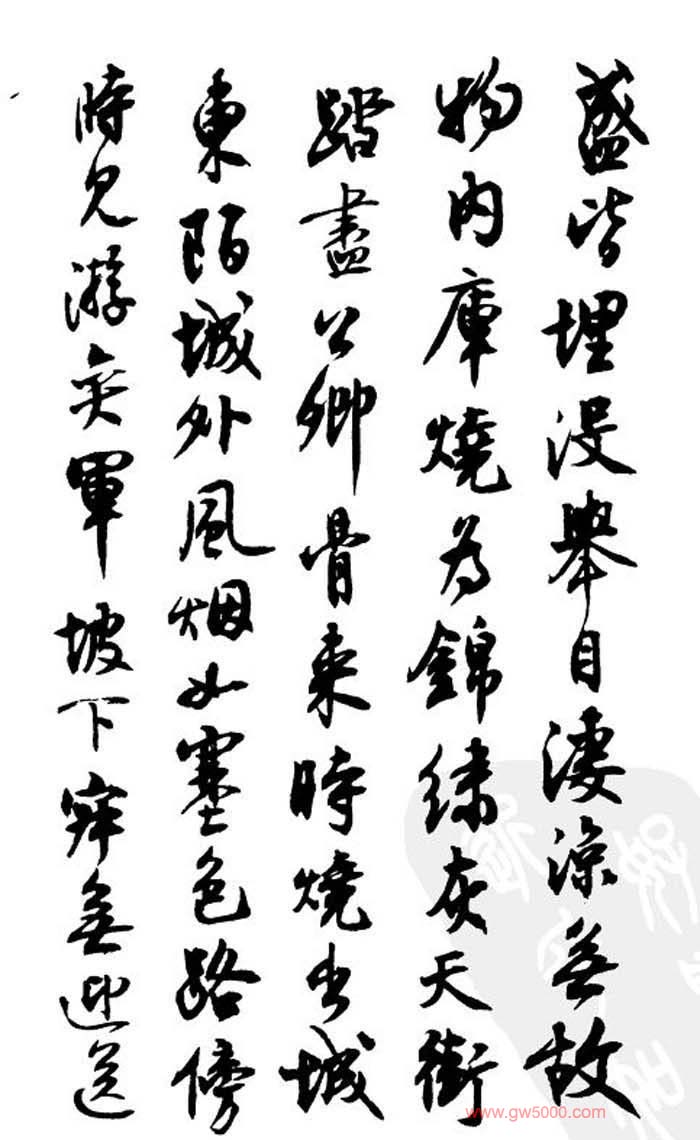 盛皆埋没舉目淒涼無故
物内庫燒為錦綉灰天街
踏盡公卿骨来時燒出城
東陌城外風烟如塞色路傍
時見游奕軍坡下寂無迎送
www.gw5000.com